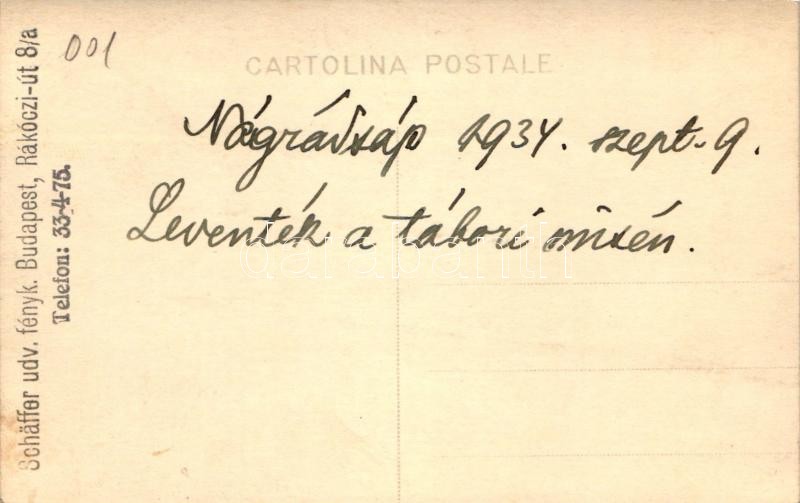 001
CARTOLINA POSTALE
Nógrádsáp 1934. szept. 9.
Leventék a tábori misén.
Schäffer udv. fényk. Budapest, Rákóczi-út 8/a
Telefon: 33-4-75.
darabanth